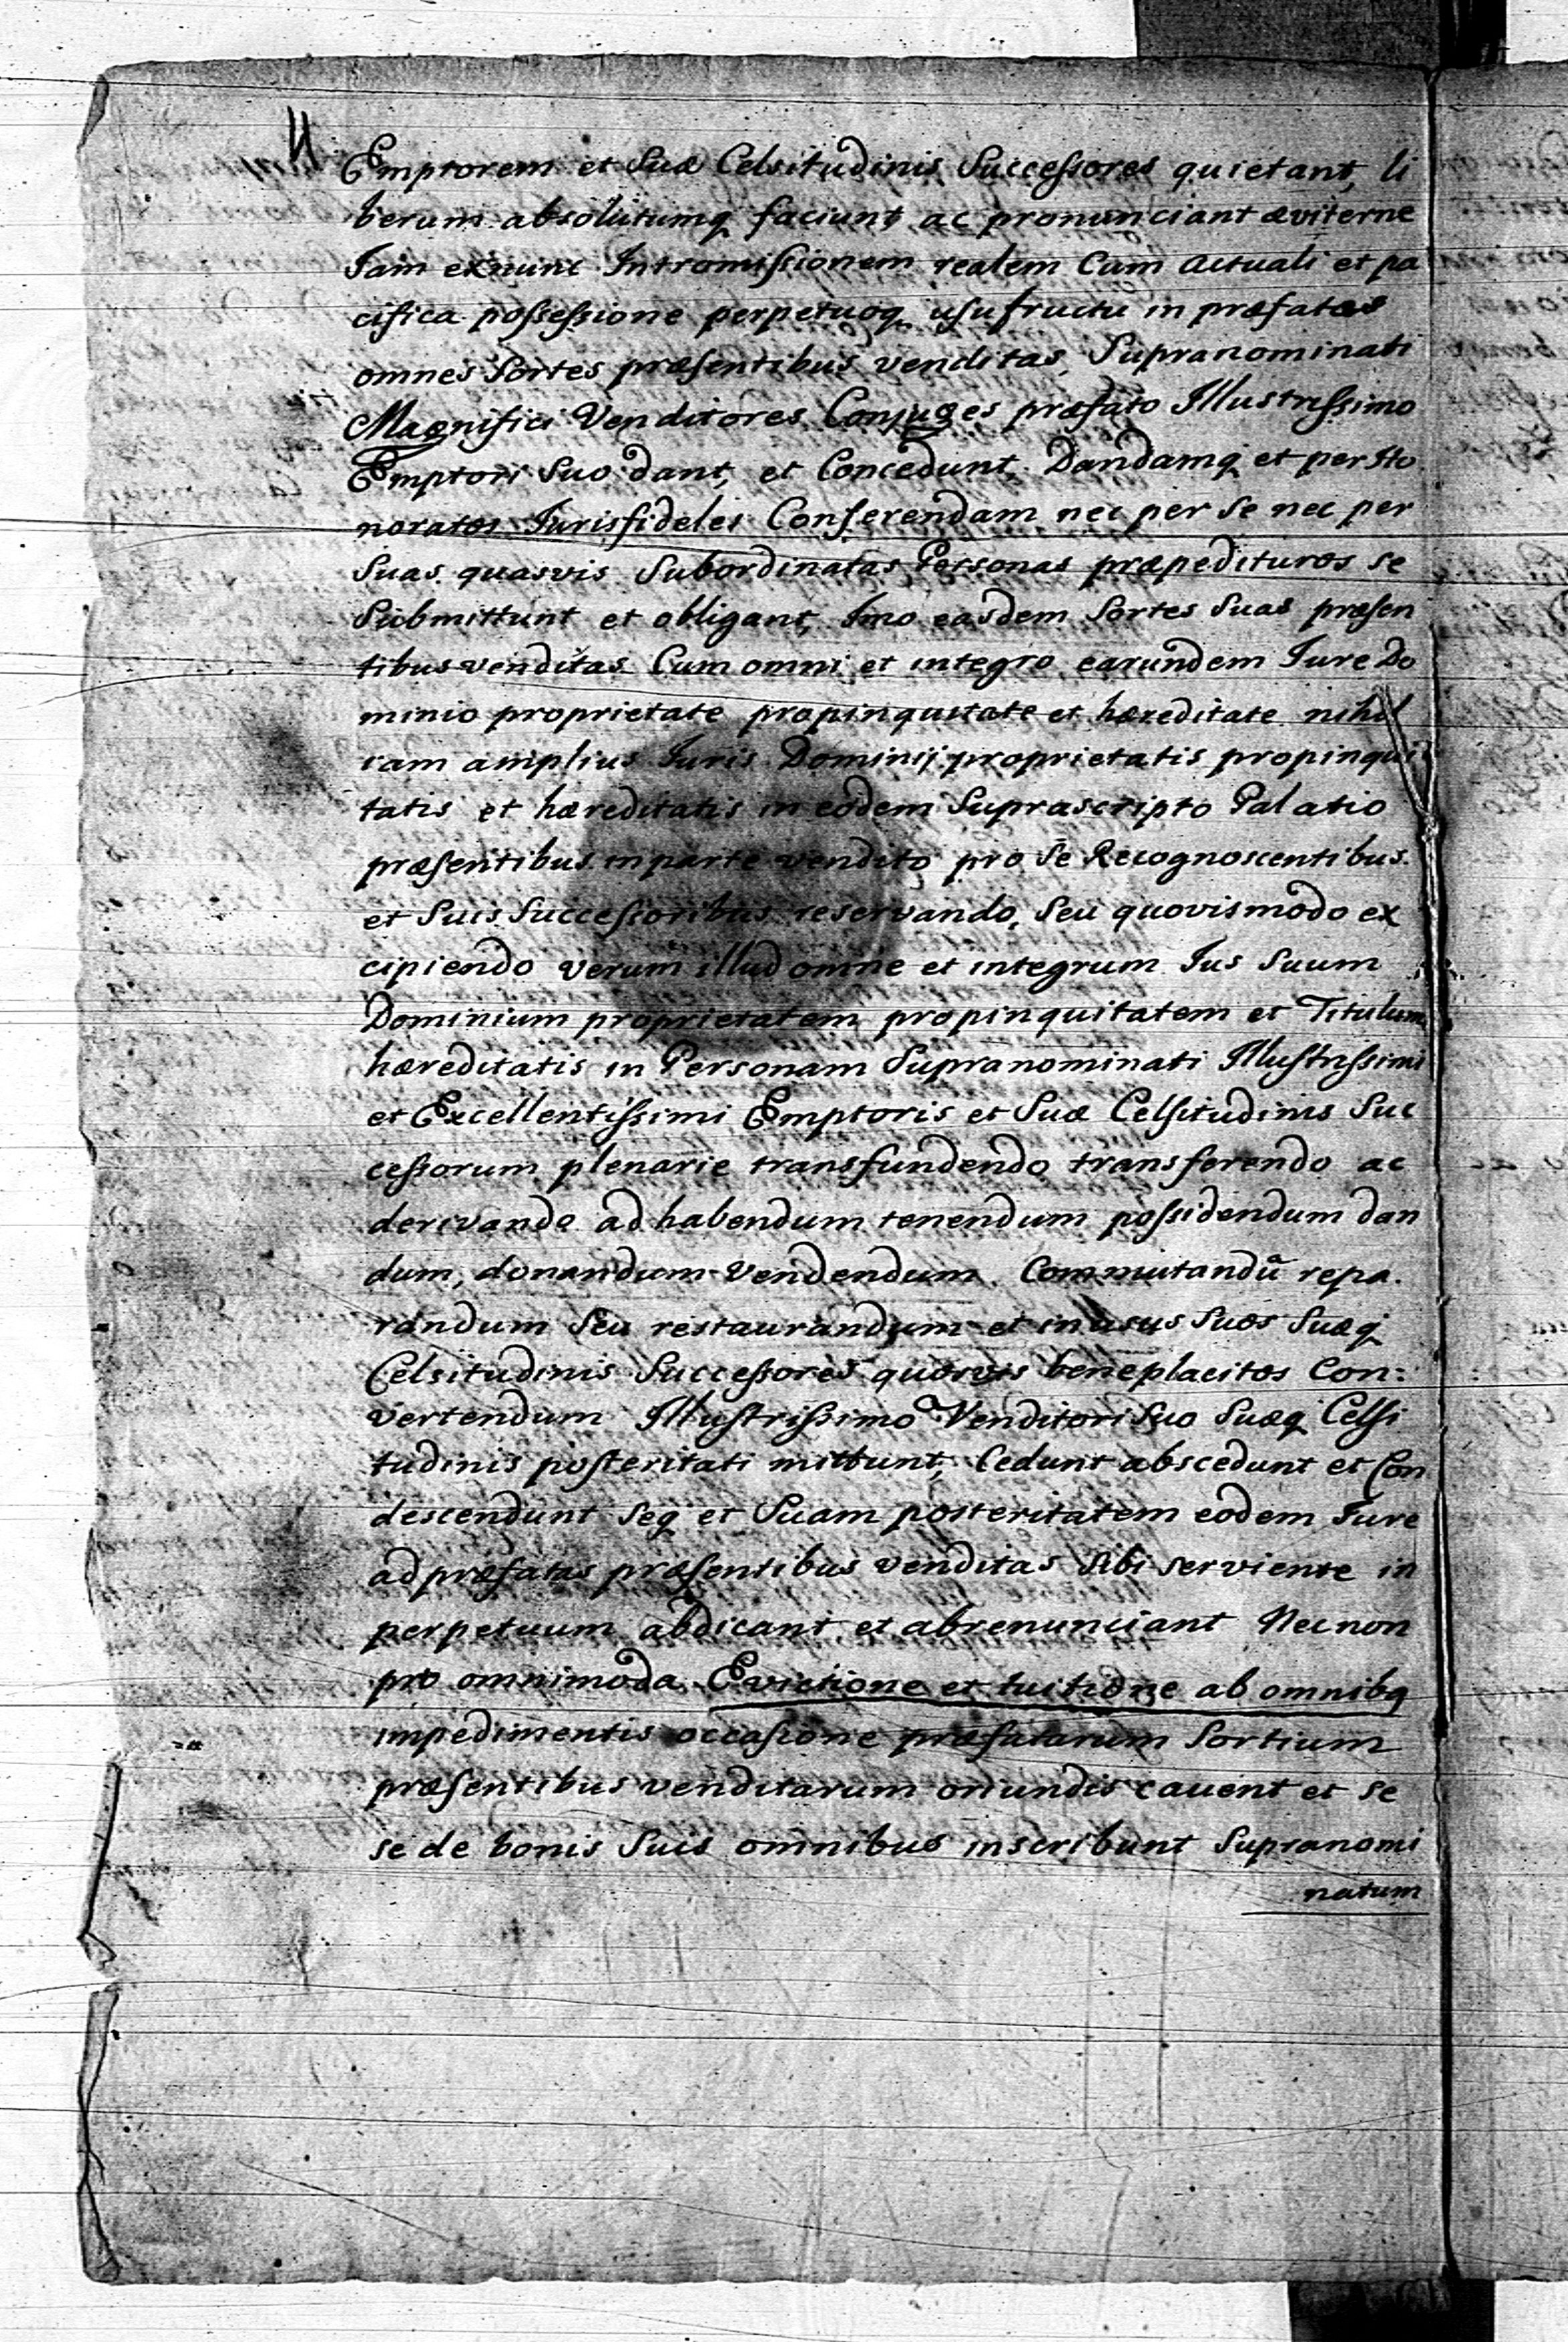 Emptorem et Suæ Celsitudinis Successores quietant, li
berum absolutumq faciunt ac pronunciant æviterne
Jam exnunc Intromissionem realem Cum Actuali et pa
cifica possessione perpetuoq usufructu in præfatas
omnes Sortes præsentibus venditas, Supranominati
Magnifici Venditores Conjuges præfato Illustrissimo
Emptori Suo dant, et Concedunt, Dandamq et per Ho
noratos Jurisfideles Conferendam nec per Se nec per
Suas quasvis Subordinatas Personas præpedituros se
Submittunt et obligant, Imo easdem Sortes Suas præsen
tibus venditas Cum omni et integro earundem Jure Do
minio proprietate propinquitate et hæreditate nihil
iam amplius Juris Dominij proprietatis propinqui
tatis et hæreditatis in eodem Suprascripto Palatio
præsentibus in parte vendito pro Se Recognoscentibus
et Suis Successoribus reservando, Seu quovismodo ex
cipiendo verum illud omne et integrum Jus Suum
Dominium proprietatem propinquitatem et Titulum
hæreditatis in Personam Supranominati Illustrissimi
et Excellentissimi Emptoris et Suæ Celsitudinis Suc
cessorum plenarie transfundendo transferendo ac
derivando ad habendum tenendum possidendum dan
dum, donandum Vendendum Commutandũ repa.
randum Seu restaurandum et in usus Suos Suæq
Celsitudinis Successores quosvis beneplacitos Con:
vertendum Illustrissimo Venditori Suo Suæq Celsi
tudinis posteritati mittunt, Cedunt abscedunt et Con
descendunt Seq et Suam posteritatem eodem Jure
ad præfatas præsentibus venditas Sibi serviente in
perpetuum abdicant et abrenunciant Necnon
pro omnimoda Evictione et tuitione ab omnibq
impedimentis occasione præfatarum Sortium
præsentibus venditarum oriundis cavent et se
se de bonis Suis omnibus inscribunt Supranomi
natum